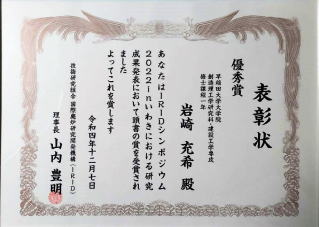 表彰状
優秀賞
早稲田大学大学院
創造理工学研究科・建設工学専攻
修士課程一年
岩崎 充希 殿
あなたはIRIDシンポジウム
2022inいわきにおける研究
成果発表において頭書の賞を受賞され
ました
よってこれを賞します
令和四年十二月七日
技術研究組合 国際廃炉研究開発機構(IRID)
理事長 山内 豊明